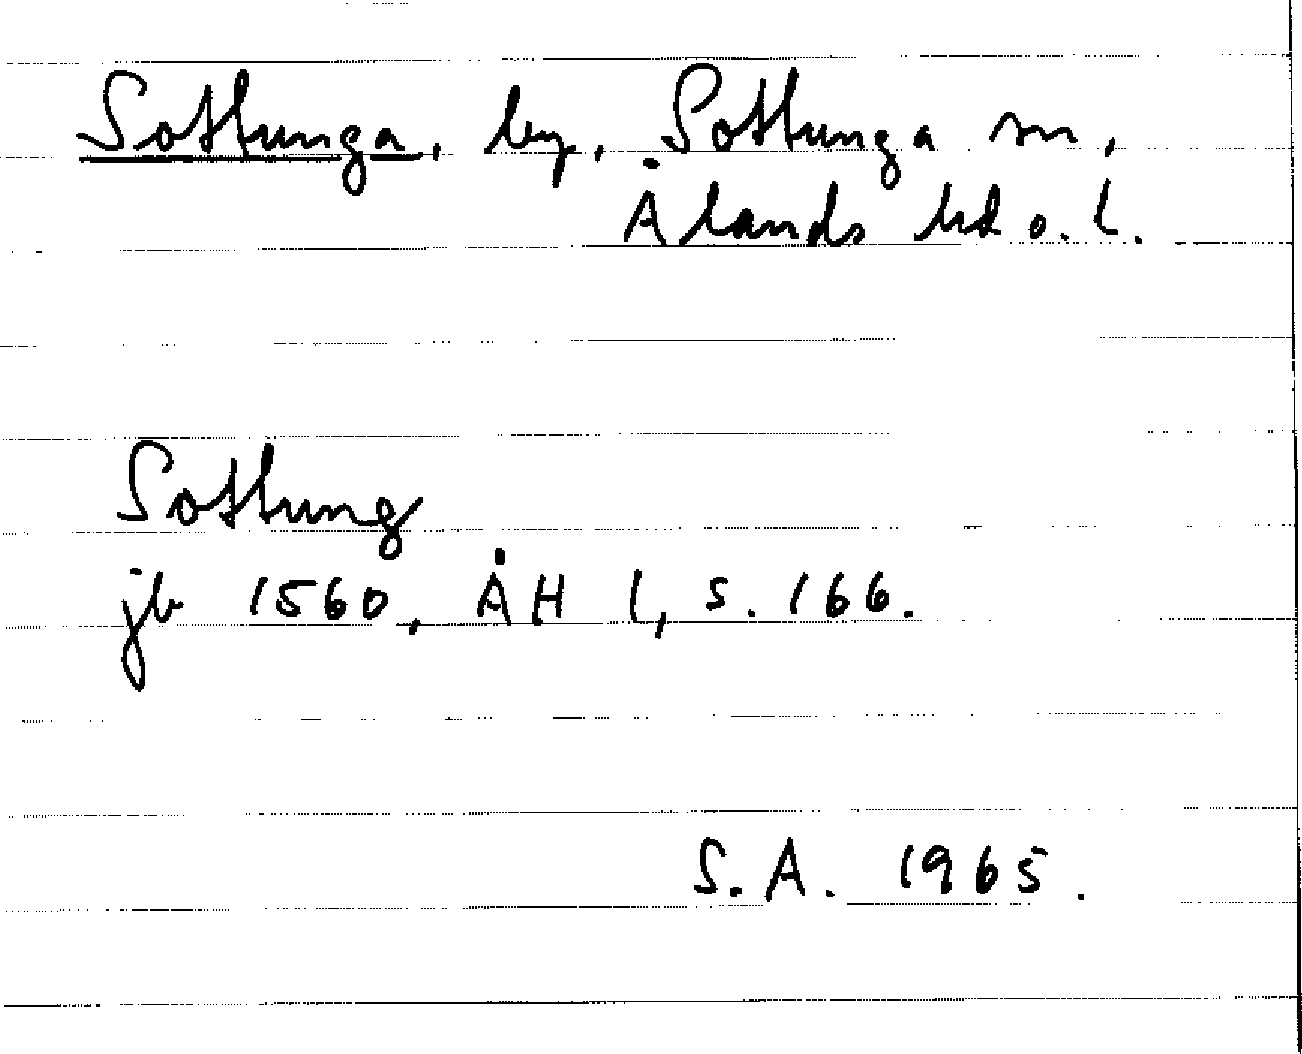 Sottunga, by, Sottunga sn,
Ålands hd o. l.
Sottung
jb 1560, ÅH I, s. 166.
S.A. 1965.